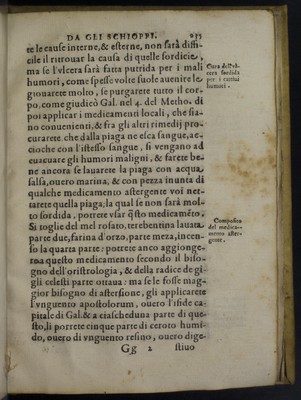 DA GLI SCHIOPPI. 235
te le cause interne, & esterne, non sarà diffi-
cile il ritrouar la causa di quelle sordicie,
ma se l'vlcera sarà fatta putrida per i mali
humori, come spesse volte suole auenire le
giouarete molto, se purgarete tutto il cor-
po, come giudicò Gal. nel 4. del Metho. di
poi applicar i medicamenti locali, che sia-
no conuenienti, & fra gli altri rimedij pro-
curarete che dalla piaga ne esca sangue, ac-
cioche con l'istesso sangue, si vengano ad
euacuare gli humori maligni, & farete be-
ne ancora se lauarete la piaga con acqua
salsa, ouero marina, & con pezza in unta di
qualche medicamento astergente voi net-
tarete quella piaga, la qual se non sarà mol-
to sordida, potrete vsar q̃sto medicamẽto.
Si toglie del mel rosato, terebentina lauata
parte due, farina d'orzo, parte meza, incen-
so la quarta parte: potrete anco aggionge-
re a questo medicamento secondo il biso-
gno dell'oristrologia, & della radice de gi-
gli celesti parte ottaua: ma se le fosse mag-
gior bisogno di astersione, gli applicarete
l'vnguento apostolorum, ouero l'iside ca-
pitale di Gal. & a ciascheduna parte di que-
sto, li porrete cinque parte di ceroto humi-
do, ouero di vnguento resino, ouero dige-
Gg 2 stiuo
Cura dell'vl-
cera sordida
per i cattiui
humori.
Compositio
del medica-
mento aster-
gente.